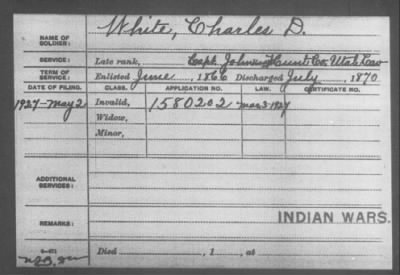 White, Charles D.
NAME OF SOLDIER:
SERVICE: Late rank, Capt. John Hunt Co. Utah Cav
TERM OF SERVICE: Enlisted June, 1866 Discharged July, 1870
DATE OF FILING. CLASS. APPLICATION NO. LAW. CERTIFICATE NO.
1927-May 2 Invalid, 1580202 mar 3-1927
Widow,
Minor,
ADDITIONAL SERVICES:
REMARKS: INDIAN WARS.
Died, 1, at